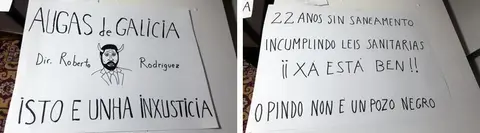 AUGAS de GALICIA
Dir. Roberto Rodriguez
ISTO E UNHA INXUSTICIA
A
22 ANOS SIN SANEAMENTO
INCUMPLINDO LEIS SANITARIAS
¡¡XA ESTÁ BEN!!
O PINDO NON E UN POZO NEGRO